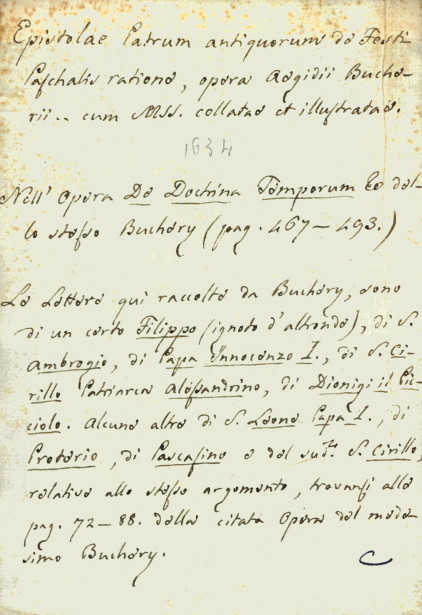 Epistolae Patrum antiquorum de Festi
Paschalis ratione, opera Aegidii Buche-
rii.. cum Mss. collatae et illustratae.
1634
Nell' Opera De Doctrina Temporum &c del-
lo stesso Buchery (pag. 467-493.)
Le Lettere qui raccolte da Buchery, sono
di un certo Filippo (ignoto d'altronde), di S.
Ambrogio, di Papa Innocenzo I., di S. Ci-
rillo Patriarca Alessandrino, di Dionigi il Pic-
ciolo. Alcune altre di S. Leone Papa I., di
Proterio, di Pascasino e del sud.to S. Cirillo,
relative allo stesso argomento, trovansi alle
pag. 72-88. della citata Opera del mede-
simo Buchery.
C